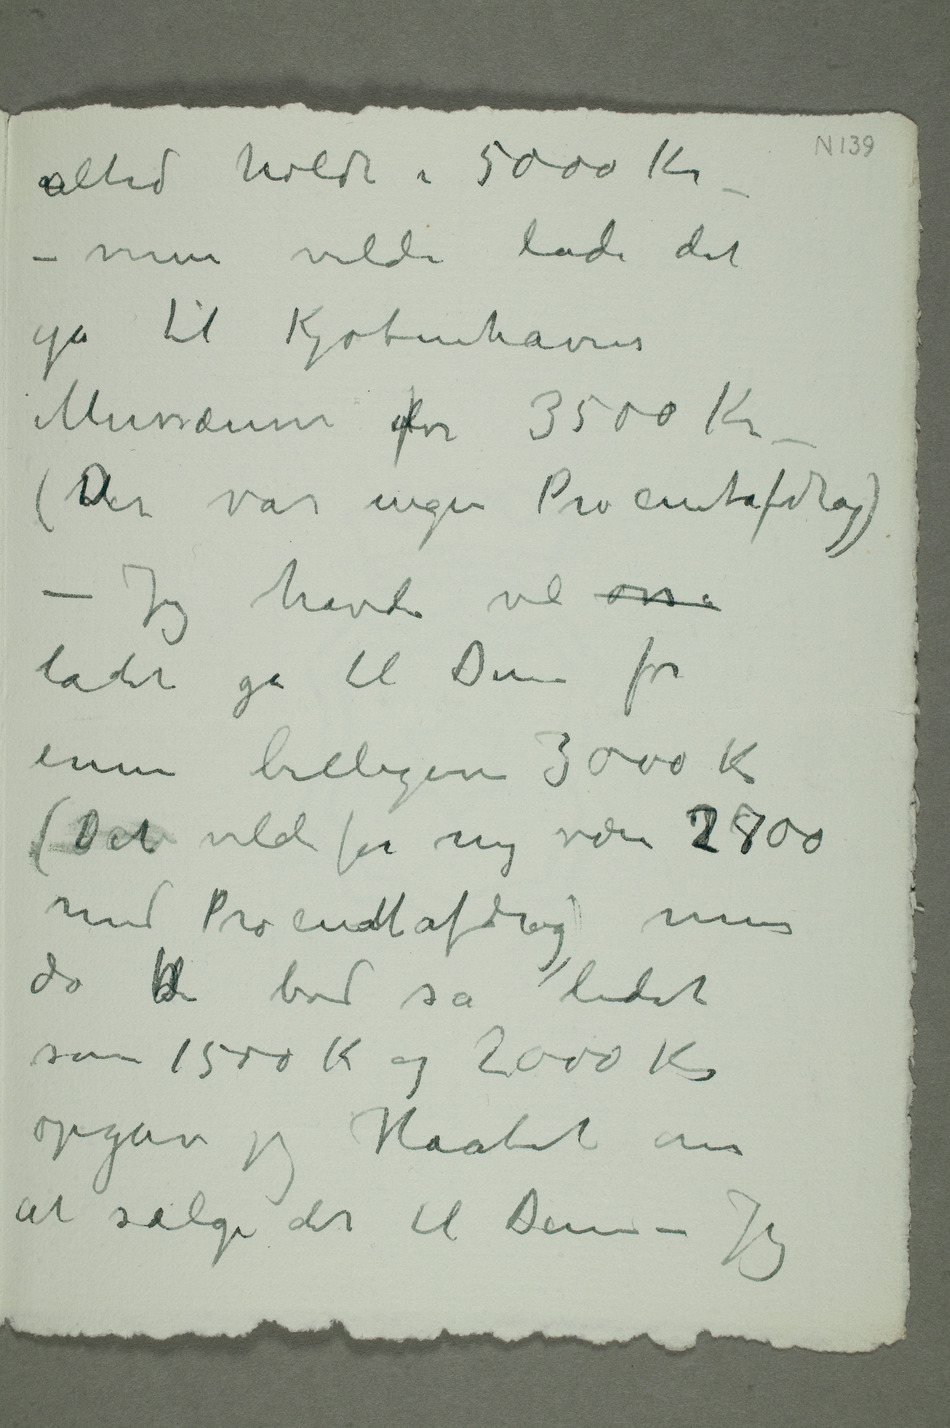 N 139
altid holdt i 5000 Kr –
– men vilde lade det
gå til Kjøbenhavns
Musæum for 3500 Kr –
(Der var ingen Procentafdrag)
– Jeg havde vel osså
ladet gå til Dem for
ennu billigere 3000 K
(Det vilde for mig være 2700
med Procentafdrag) men
da De bød så lidet
som 1500 K og 2000 Kr
opgav jeg Haabet om
at sælge det til Dem – Jeg